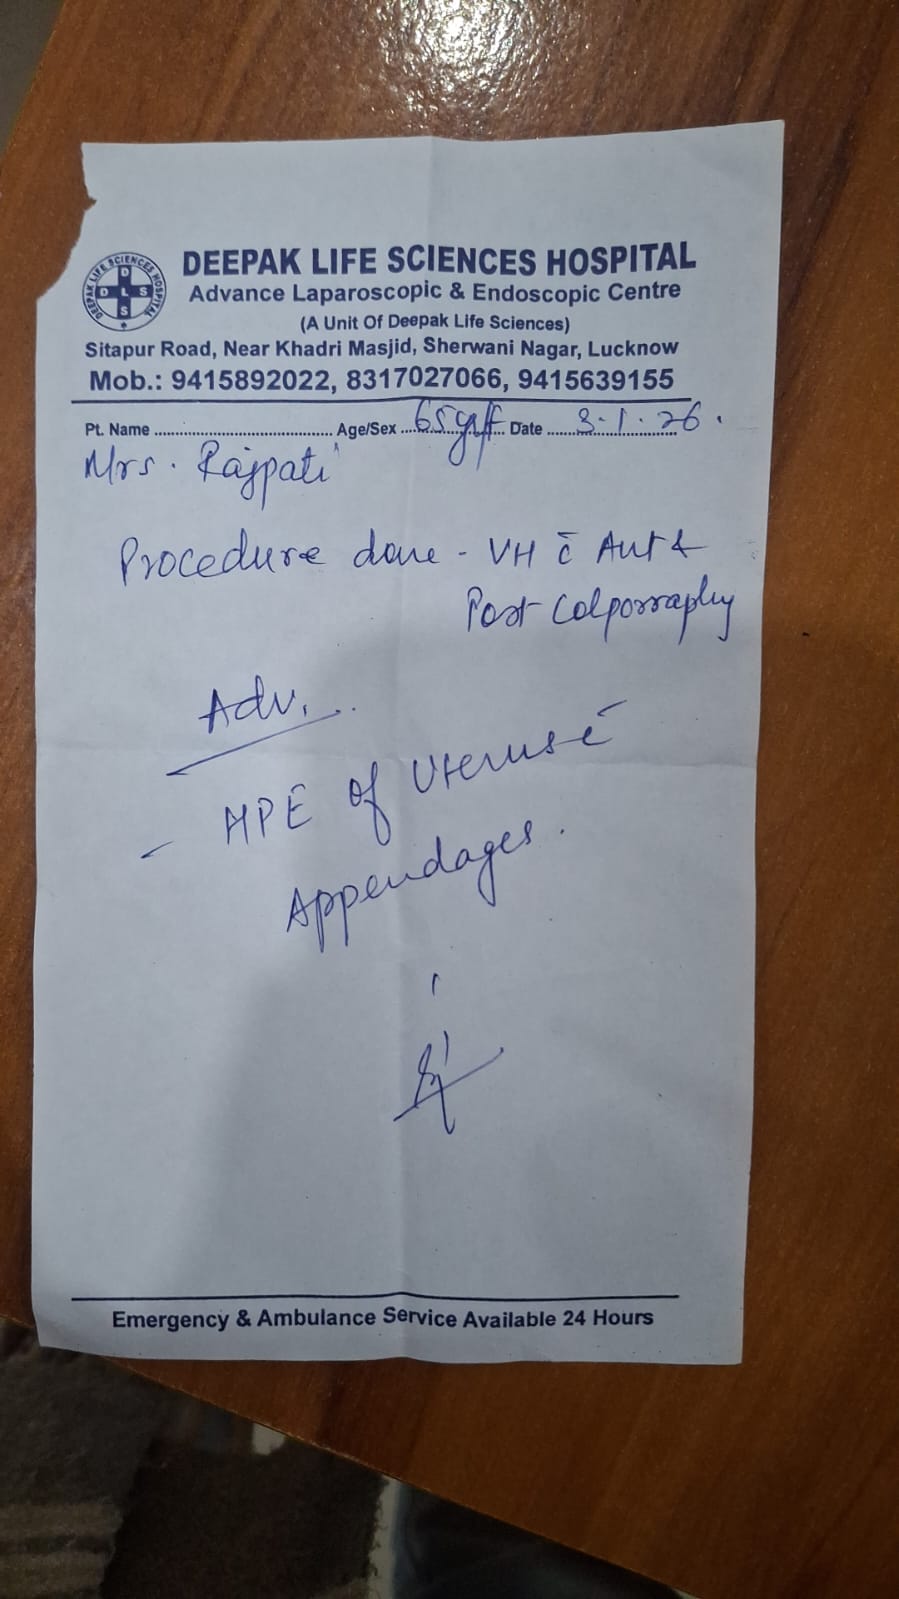 DEEPAK LIFE SCIENCES HOSPITAL
Advance Laparoscopic & Endoscopic Centre
(A Unit Of Deepak Life Sciences)
Sitapur Road, Near Khadri Masjid, Sherwani Nagar, Lucknow
Mob.: 9415892022, 8317027066, 9415639155
DEEPAK LIFE SCIENCES HOSPITAL
D
D L S
S
Pt. Name ................................. Age/Sex ....65yr/f.... Date ....3.1.26.
Mrs. Rajpati
Procedure done - VH c̄ Ant &
Post Colporraphy
Adv.
- HPE of Uterus c̄
Appendages.
Emergency & Ambulance Service Available 24 Hours